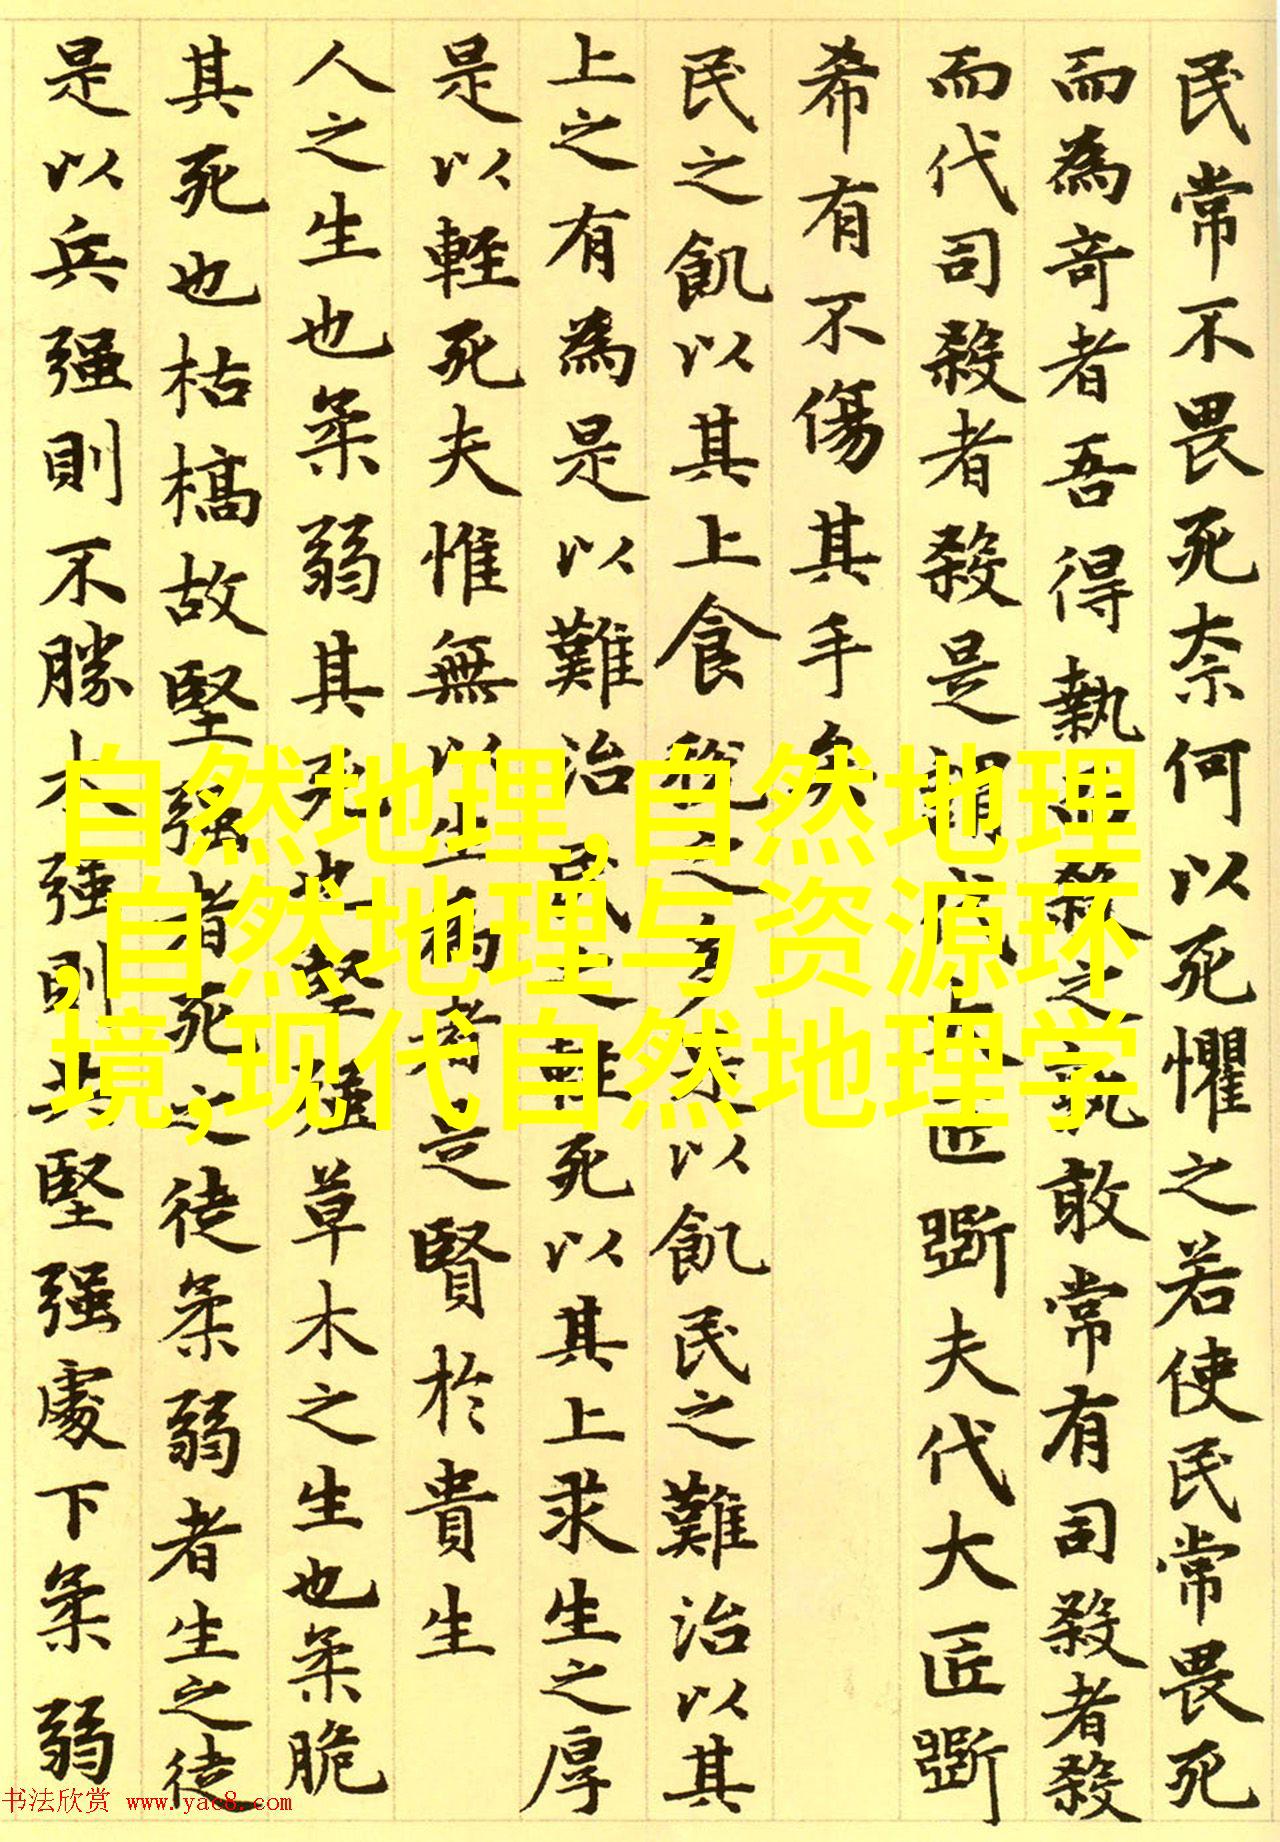 民常不畏死柰何以死懼之若使民常畏死
而為奇者吾得執而殺之孰敢常有司殺者殺
而代司殺者殺是謂代大匠斲夫代大匠斲
希有不傷其手矣
民之飢以其上食稅之多是以飢民之難治以其
上之有為是以難治民之輕死以其上求生之厚
是以輕死夫惟無以生為者是賢於貴生
人之生也柔弱其死也堅强草木之生也柔脆
其死也枯槁故堅强者死之徒柔弱者生之徒
是以兵强則不勝木强則共堅强處下柔弱
自然地理,自然地理
,自然地理与资源环
境,现代自然地理学
书法欣赏 www.yac8.com